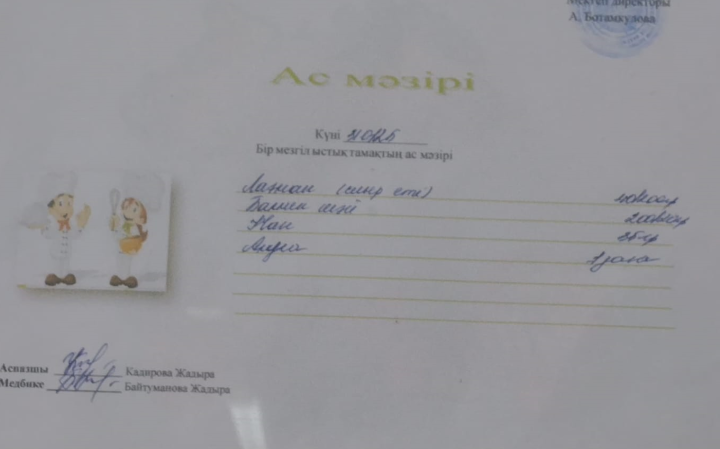 Мектеп директоры
А. Ботамкулова
Ас мәзірі
Күні
Бір мезгіл ыстық тамақтың ас мәзірі
Лагман (сиыр еті)
Балмен шәй 200
Нан
Алма 1 дана
Аспазшы Кадирова Жадыра
Медбике Байтуманова Жадыра